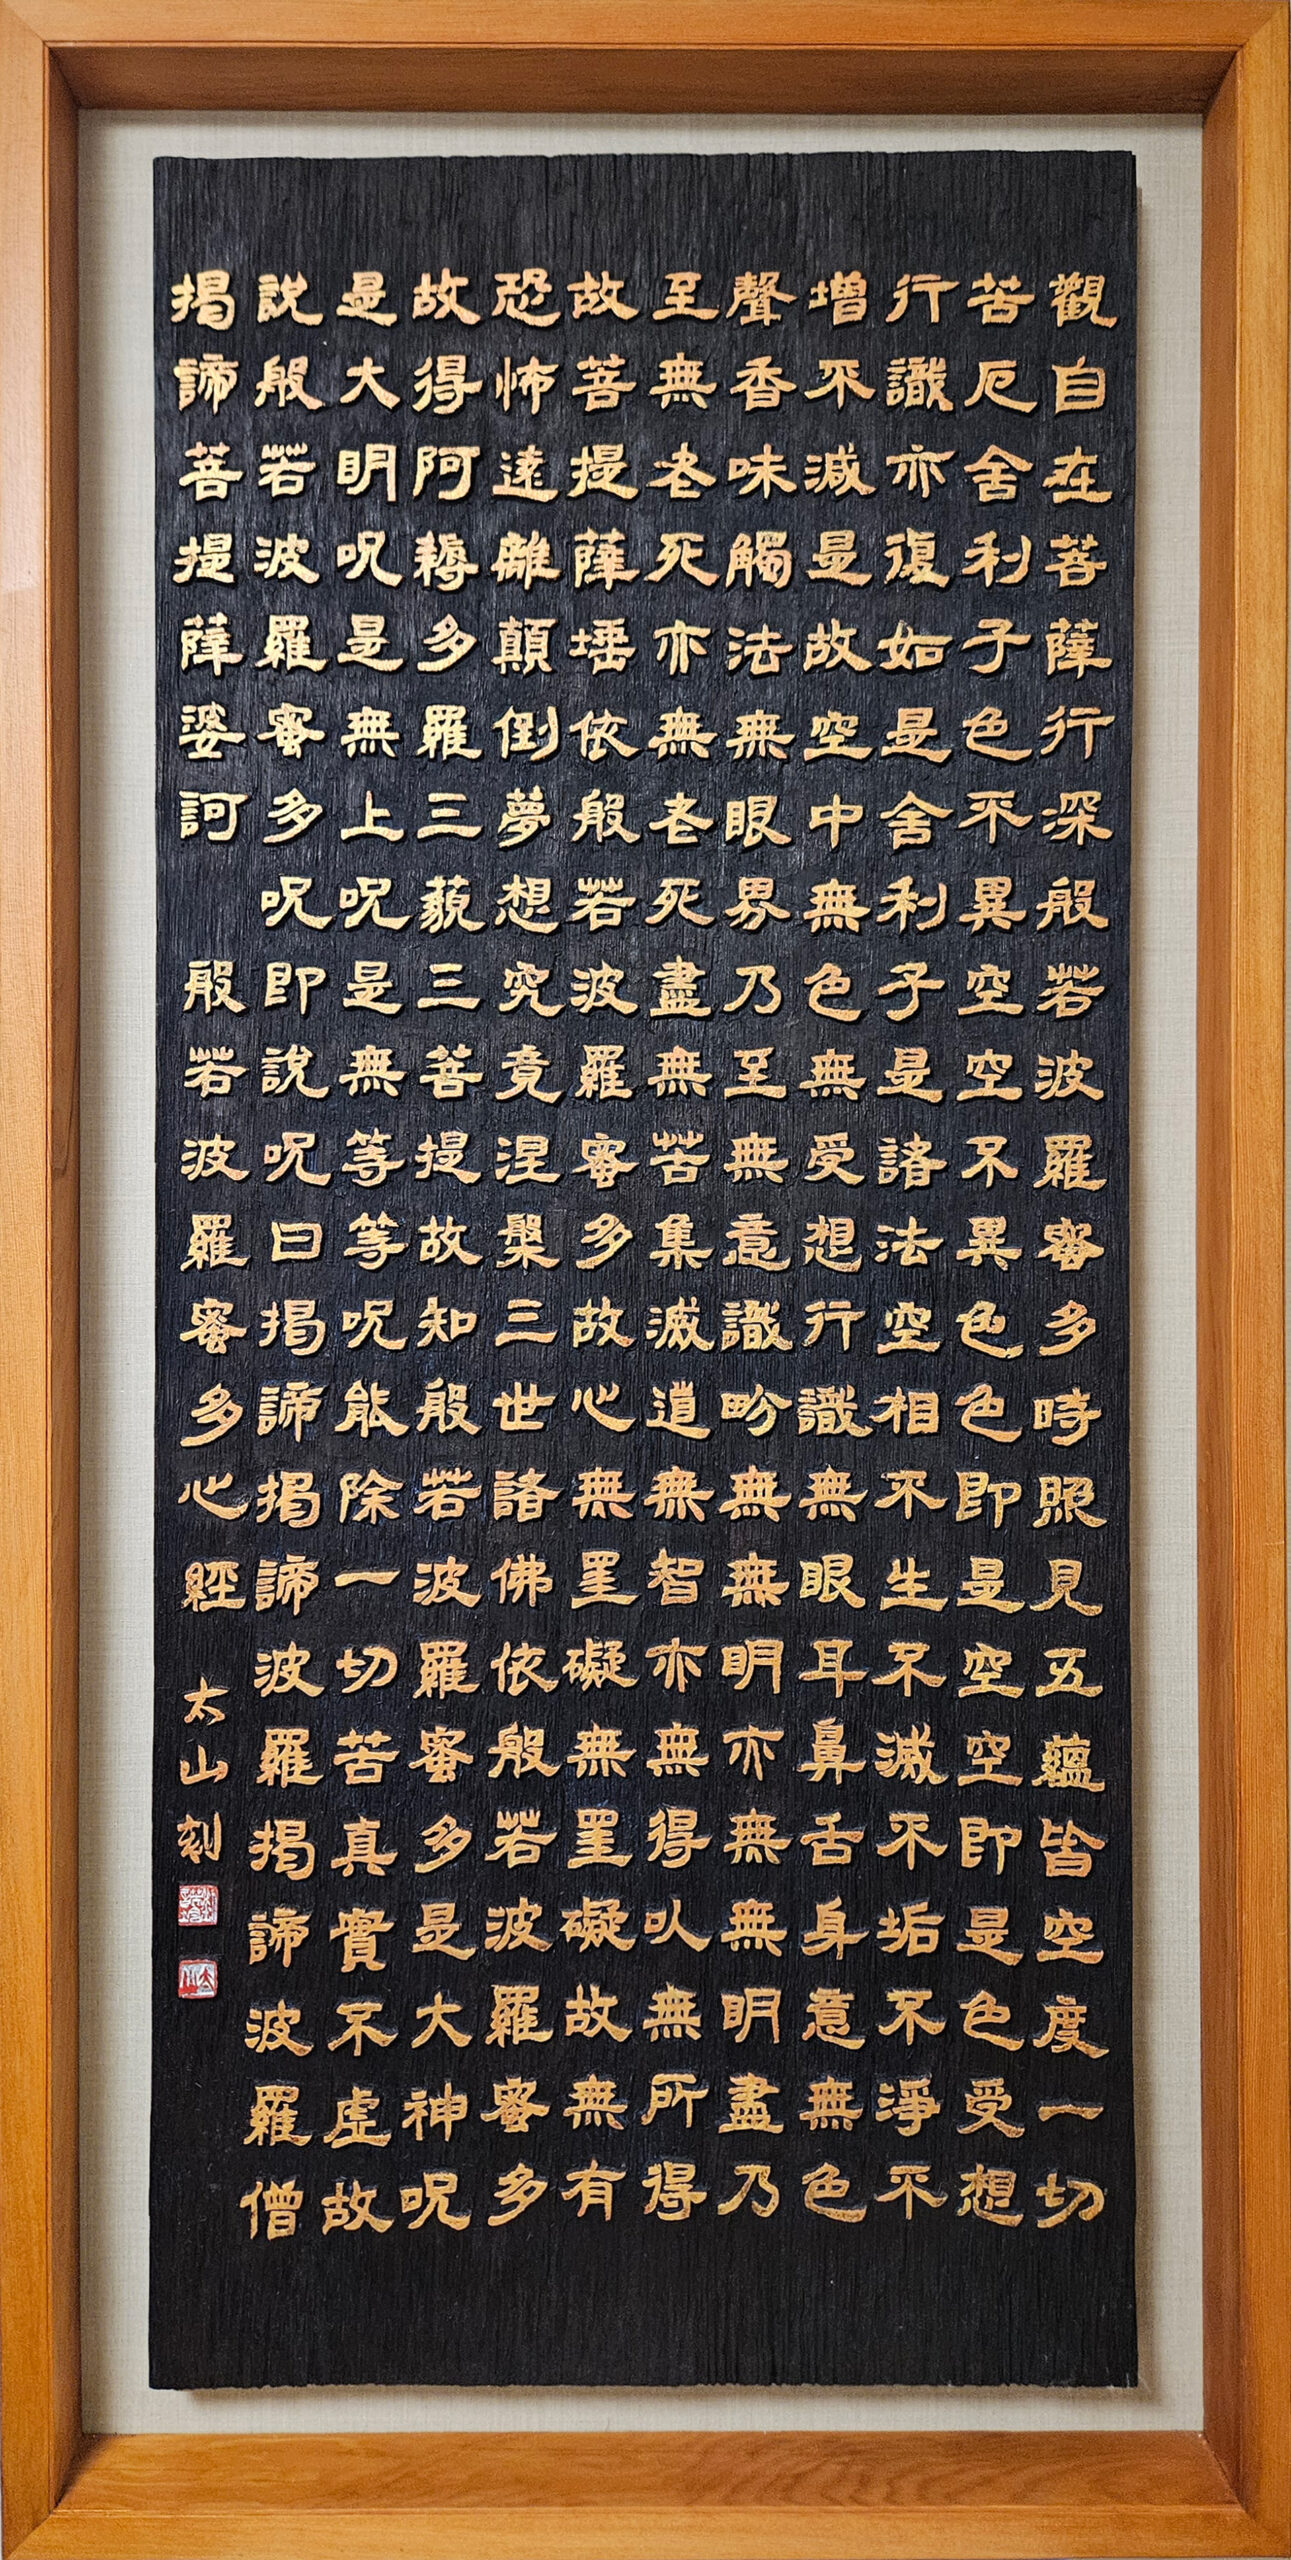 觀自在菩薩行深般若波羅蜜多時照見五蘊皆空度一切
苦厄舍利子色不異空空不異色色即是空空即是色受想
行識亦復如是舍利子是諸法空相不生不滅不垢不淨不
增不減是故空中無色無受想行識無眼耳鼻舌身意無色
聲香味觸法無眼界乃至無意識界無無明亦無無明盡乃
至無老死亦無老死盡無苦集滅道無智亦無得以無所得
故菩提薩埵依般若波羅蜜多故心無罣礙無罣礙故無有
恐怖遠離顛倒夢想究竟涅槃三世諸佛依般若波羅蜜多
故得阿耨多羅三藐三菩提故知般若波羅蜜多是大神呪
是大明呪是無上呪是無等等呪能除一切苦真實不虛故
說般若波羅蜜多呪即說呪曰揭諦揭諦波羅揭諦波羅僧
揭諦菩提薩婆訶 般若波羅蜜多心經 太山刻